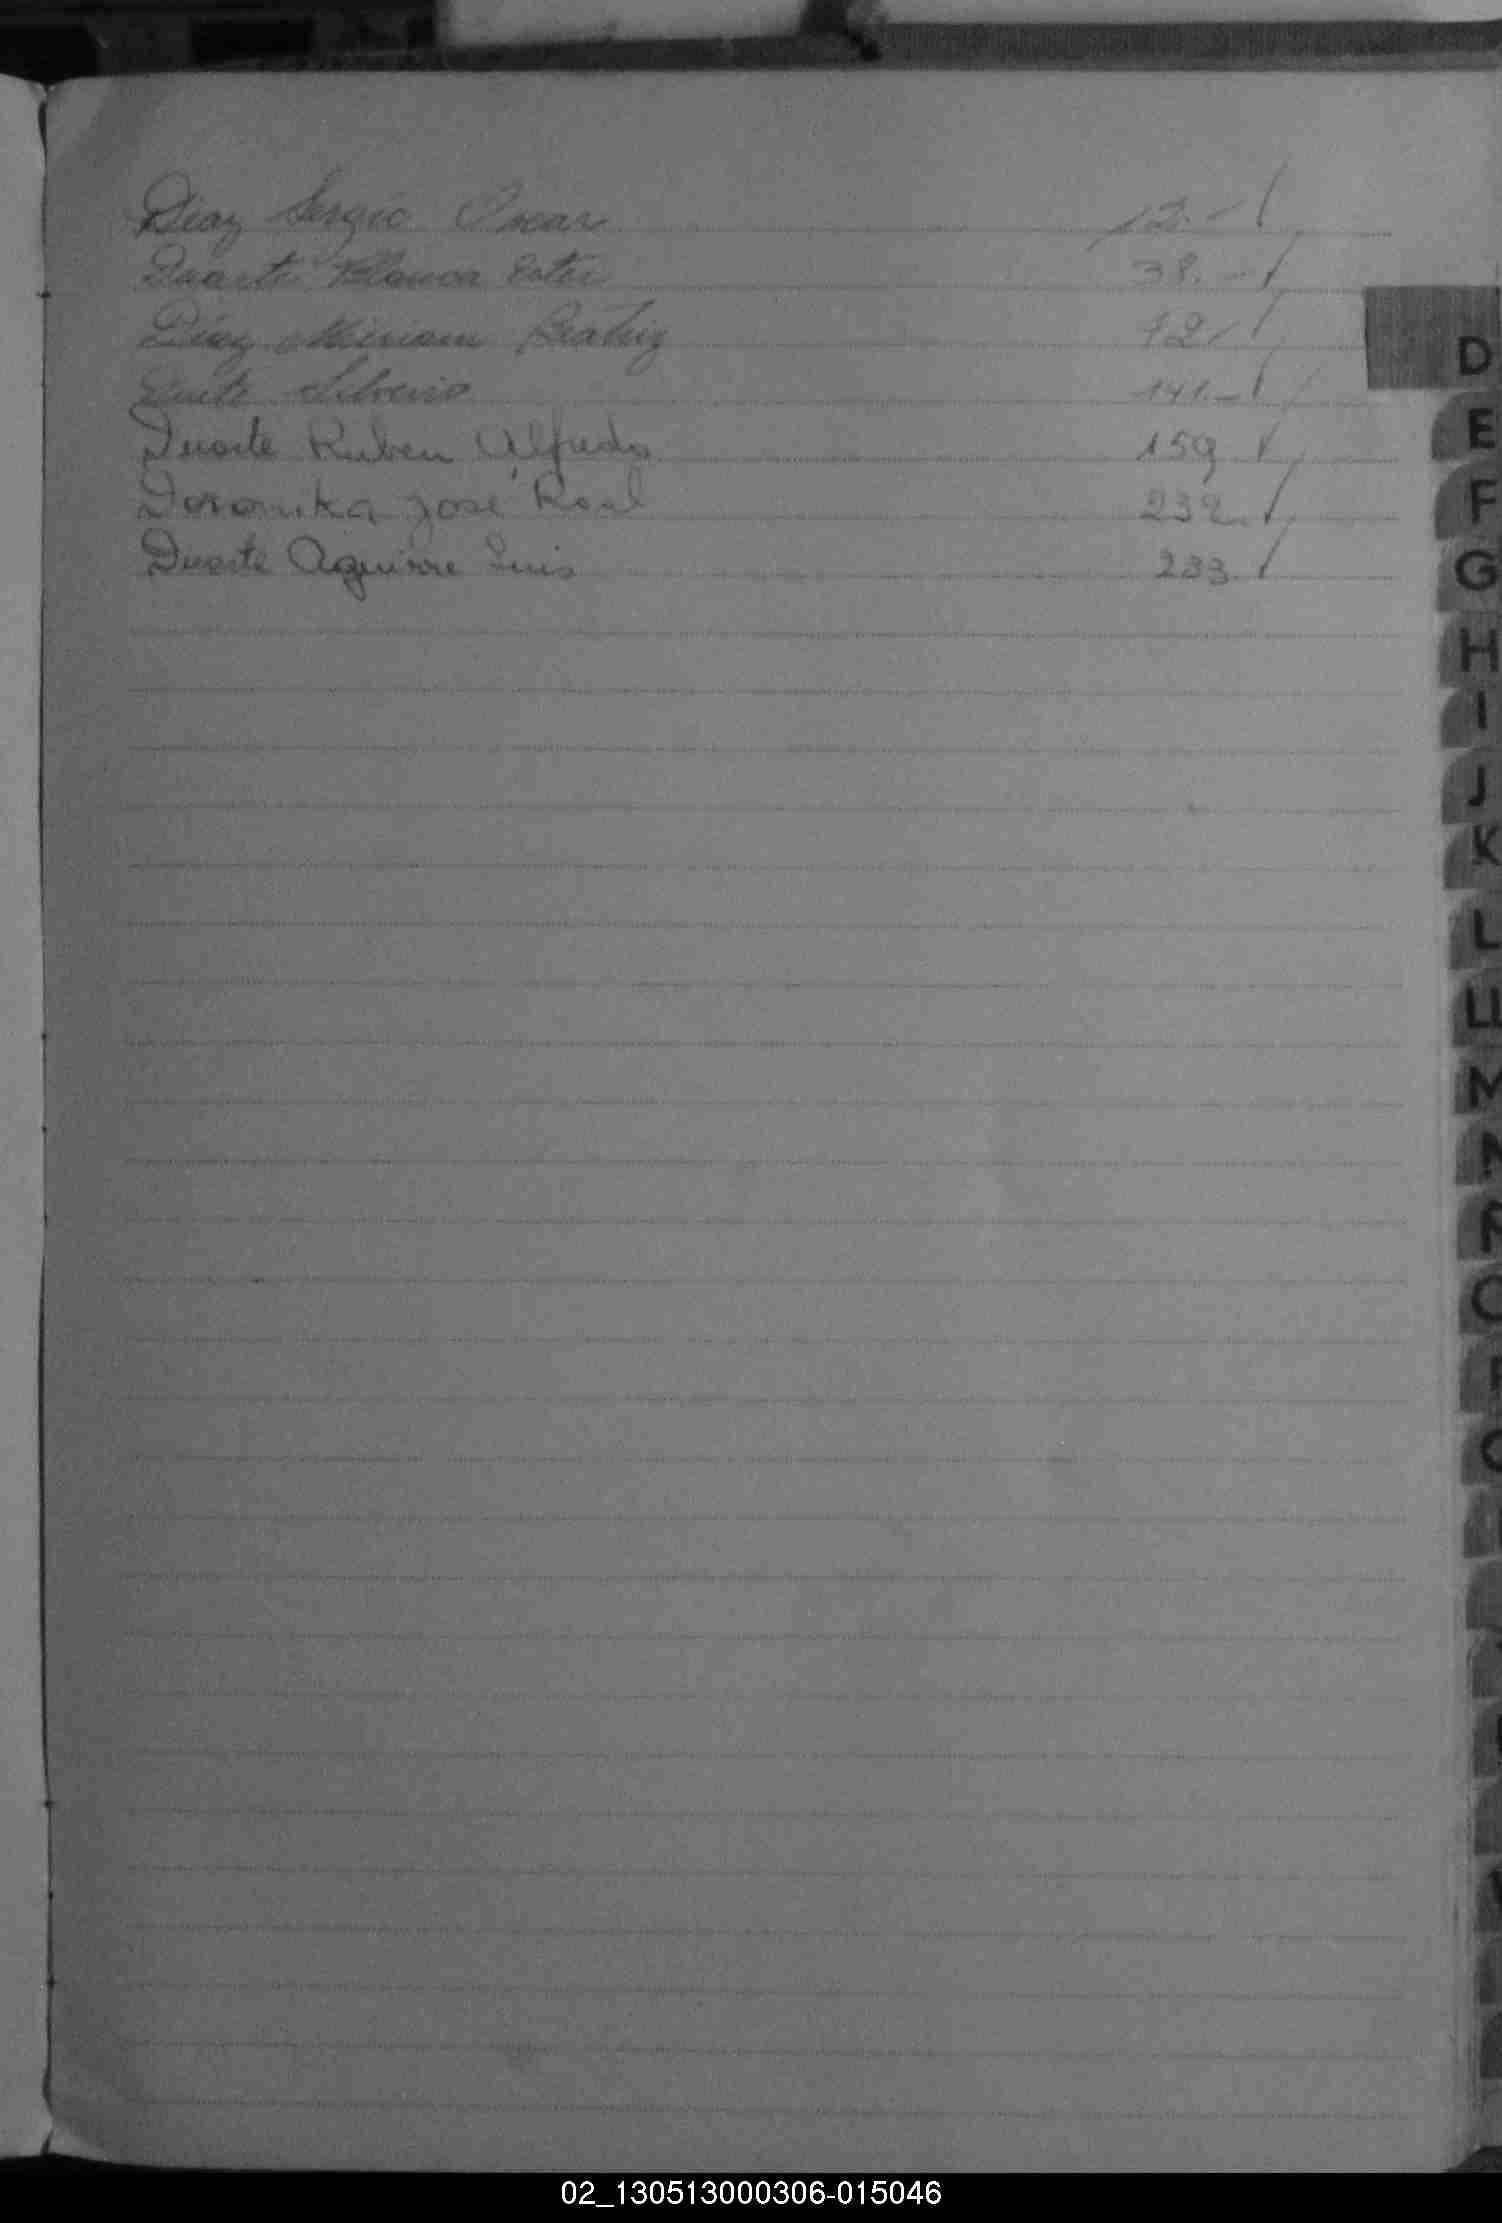 Diaz Sergio Oscar 12.-
Duarte Blanca Ester 38.-
Diaz Miriam Beatriz 72
Silverio 141.-
Duarte Ruben Alfredo 159
Doronika José Raul 232.
Duarte Aguirre Luis 233
D
E
F
G
H
I
J
K
L
LL
M
N
02_130513000306-015046